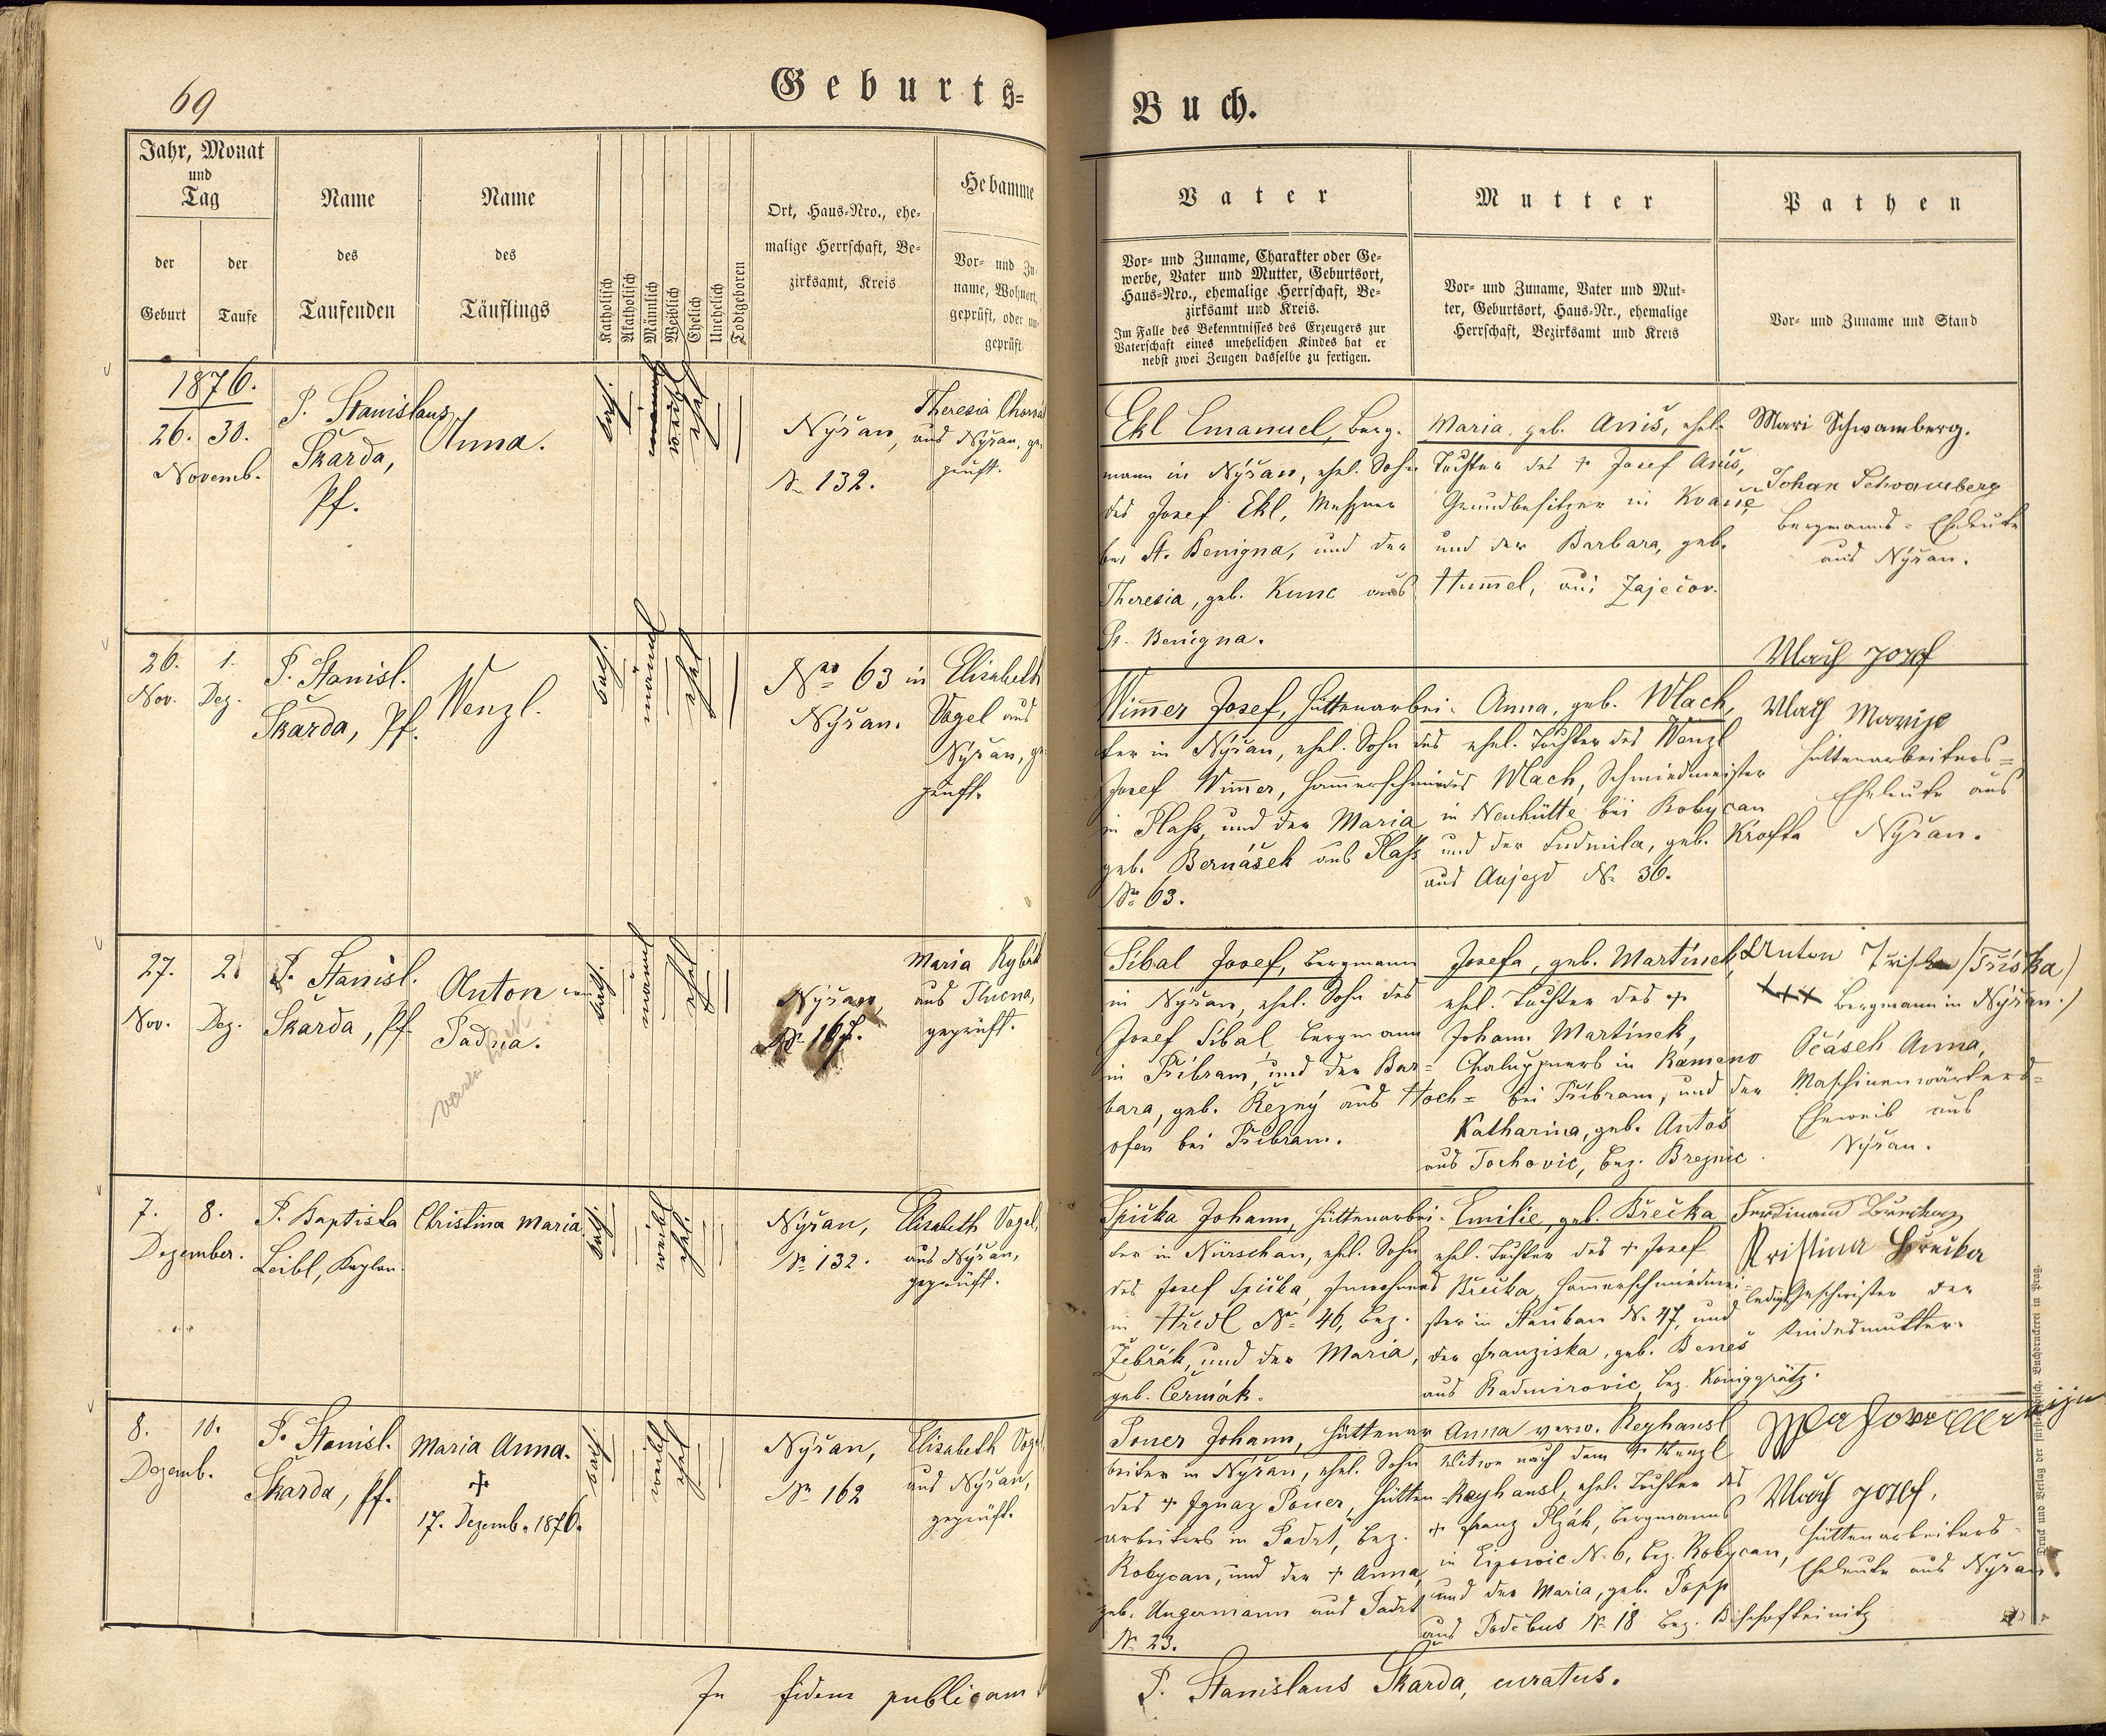 69
Geburts=
Buch.
Jahr, Monat
und
Tag
der
Geburt
der
Taufe
Name
des
Taufenden
Name
des
Täuflings
Katholisch
Akatholisch
Männlich
Weiblich
Ehelich
Unehelich
Todtgeboren
Ort, Haus=Nro., ehe=
malige Herrschaft, Be=
zirksamt, Kreis
Hebamme
Vor= und Zu=
name, Wohnort,
geprüft, oder un=
geprüft
Vater
Vor= und Zuname, Charakter oder Ge=
werbe, Vater und Mutter, Geburtsort,
Haus=Nro., ehemalige Herrschaft, Be=
zirksamt und Kreis.
Im Falle des Bekenntnisses des Erzeugers zur
Vaterschaft eines unehelichen Kindes hat er
nebst zwei Zeugen dasselbe zu fertigen.
Mutter
Vor= und Zuname, Vater und Mut=
ter, Geburtsort, Haus=Nr., ehemalige
Herrschaft, Bezirksamt und Kreis
Pathen
Vor= und Zuname und Stand
1876.
26. 30.
Novemb.
P. Stanislaus
Škarda,
Pf.
Anna.
kath.
männl
weibl
ehel
Nýřan,
No 132.
Theresia
aus Nýřan, ge-
prüft.
Ekl Emanuel, Berg-
mann in Nýřan, ehel. Sohn
des Josef Ekl, Meßner
bei St. Benigna, und der
Theresia, geb. Kunc aus
St. Benigna.
Maria, geb. Aniš, ehel.
Tochter des + Josef Aniš,
Grundbesitzer in
und der Barbara, geb.
Hum̄el, aus Zaječov.
Mari Schwamberg.
Johan Schwamberg
Bergmanns-Eheleute
aus Nýřan.
26. 1.
Nov. Dez.
P. Stanisl.
Škarda, Pf.
Wenzl.
kath.
männl
ehel
Nro 63 in
Nýřan.
Elisabeth
Vogel aus
Nýřan, ge-
prüft.
Wim̄er Josef, Hüttenarbei-
ter in Nýřan, ehel. Sohn des
Josef Wim̄er, Ham̄erschmiedes
in Plaß, und der Maria
geb. Bernášek aus Plaß
No 63.
Anna, geb. Wlach,
ehel. Tochter des Wenzl
Wlach, Schmiedmeister
in Neuhütte bei Rokycan
und der Ludmila, geb. Krofta
aus Aujezd No 36.
Vlach Josef
Vlach Marije
Hüttenarbeiters=
Eheleute aus
Nýřan.
27. 2.
Nov. Dez.
P. Stanisl.
Škarda, Pf.
Anton von
Padua.
kath.
männl
ehel.
Nýřan,
No 167.
Maria Rybák
aus Tlucna,
geprüft.
Šíbal Josef, Bergmann
in Nýřan, ehel. Sohn des
Josef Šíbal, Bergmann
in Příbram, und der Bar=
bara, geb. Řezný aus Hoch=
ofen bei Příbram.
Josefa, geb. Martínek,
ehel. Tochter des +
Johann Martínek,
Chaluppners in Kameno
bei Příbram, und der
Katharina, geb. Antoš
aus Tochovic, bez. Březnic.
Anton Trischka /Tříska/
+++ Bergmann in Nýřan./
Očásek Anna,
Maschinenwärters=
Eheweib aus
Nýřan.
7. 8.
Dezember.
P. Baptista
Leibl, Kaplan
Christina Maria
kath.
weibl
ehel.
Nýřan,
No 132.
Elisabeth Vogel,
aus Nýřan,
geprüft.
Špička Johann, Hüttenarbei-
ter in Nürschan, ehel. Sohn
des Josef Špička, Inwohners
in Hředl No 46, bez.
Žebrák, und der Maria,
geb. Čermák.
Emilie, geb. Břečka
ehel. Tochter des + Josef
Břečka, Ham̄erschmiedmei-
ster in No 47, und
der Franziska, geb. Beneš
aus Radmirovic bez. Königgrätz.
Ferdinand Brečka
Kristina Brečka
ledige Geschwister der
Kindesmutter.
8. 10.
Dezemb.
P. Stanisl.
Škarda, Pf.
Maria Anna.
+
17. Dezemb. 1876.
kath
weibl
ehel
Nýřan,
No 162
Elisabeth Vogel
aus Nýřan,
geprüft.
Toner Johann, Hüttenar-
beiter in Nýřan, ehel. Sohn
des + Ignaz Toner, Hütten-
arbeiters in Padrt, bez.
Rokycan, und der + Anna,
geb. Ungermann aus Padrt
No 23.
Anna verw. Reyhansl
Witwe nach dem + Wenzl
Reyhansl, ehel. Tochter des
+ Franz Plzák, Bergmanns
in Lipowic No 6, bez. Rokycan,
und der Maria, geb. Popp
aus Podebus No 18 bez. Bischofteinitz
Vlach Josef,
Hüttenarbeiters-
Eheleute aus Nýřan.
Druck und Verlag der fürsterzbisch. Buchdruckerei in Prag.
In fidem publicam
P. Stanislaus Škarda, curatus.